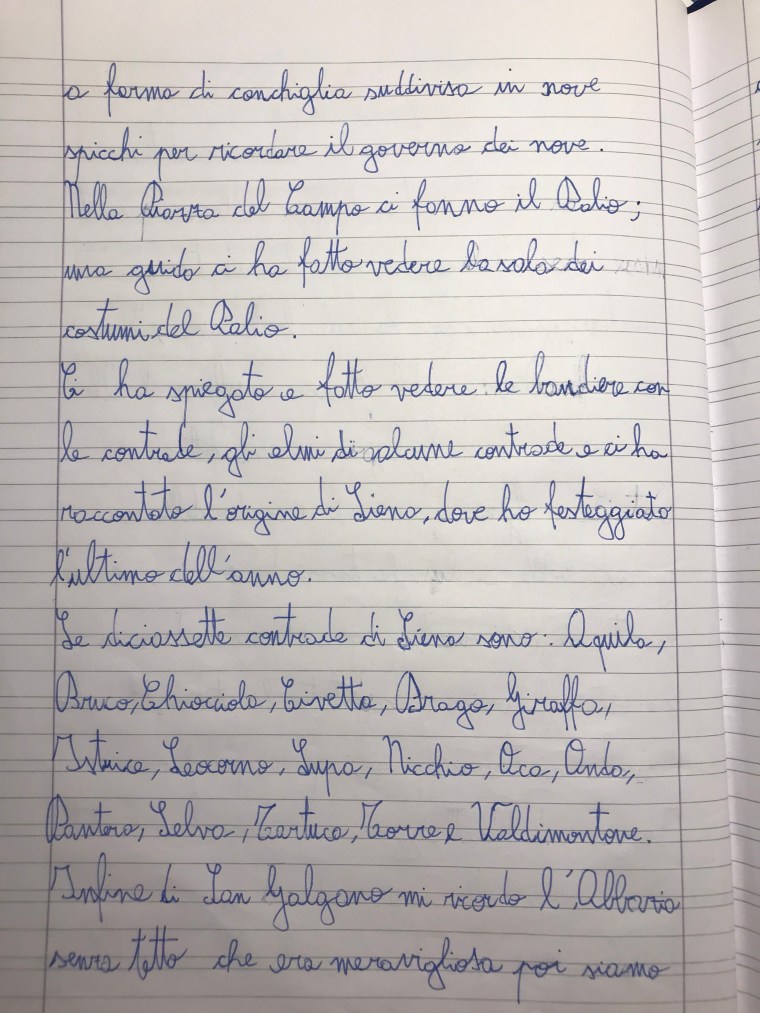 a forma di conchiglia suddivisa in nove
spicchi per ricordare il governo dei nove.
Nella Piazza del Campo ci fanno il Palio;
una guida ci ha fatto vedere la sala dei
costumi del Palio.
Ci ha spiegato e fatto vedere le bandiere con
le contrade, gli elmi di alcune contrade e ci ha
raccontato l'origine di Siena, dove ho festeggiato
l'ultimo dell'anno.
Le diciassette contrade di Siena sono: Aquila,
Bruco, Chiocciola, Civetta, Drago, Giraffa,
Istrice, Leocorno, Lupa, Nicchio, Oca, Onda,
Pantera, Selva, Tartuca, Torre e Valdimontone.
Infine di San Galgano mi ricordo l'Abbazia
senza tetto che era meravigliosa poi siamo